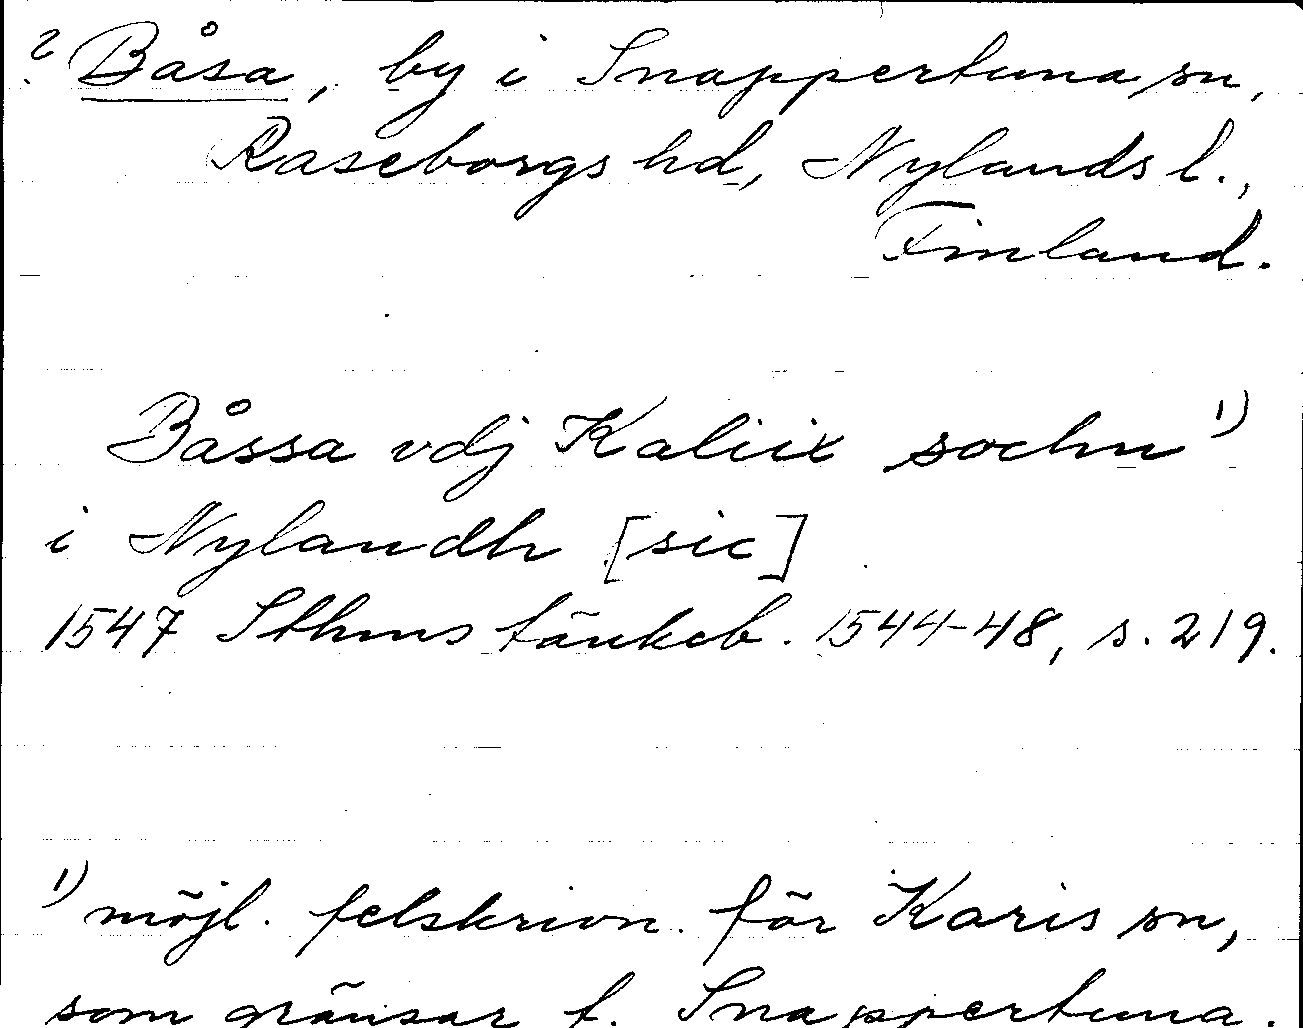 ? Båsa, by i Snappertuna sn,
Raseborgs hd, Nylands l.,
Finland.
Båssa vdj Kaliix sochn 1)
i Nylandh [sic]
1547 Sthms tänkeb. 1544-48, s. 219.
1) möjl. felskrivn. för Karis sn,
som gränsar t. Snappertuna.